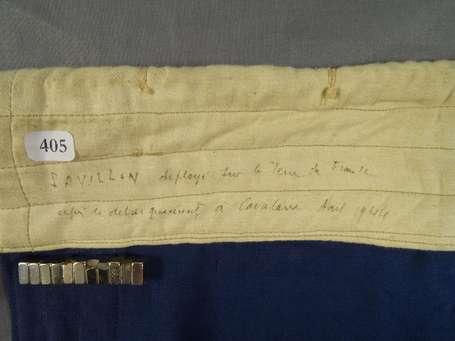 405
PAVILLON deployé sur la Terre de France
après le debarquement à Cavalaire Aout 1944